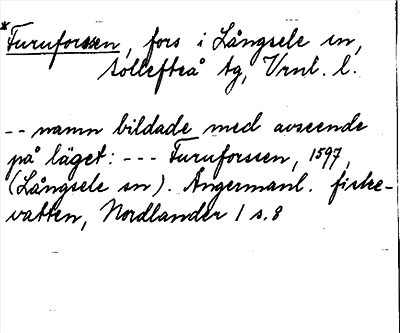 *Furuforssen, fors i Långsele sn,
Sollefteå tg, Vrnl. l.
-- namn bildade med avseende
på läget: --- Furuforssen, 1597,
(Långsele sn). Ångermanl. fiske-
vatten, Nordlander 1 s. 8